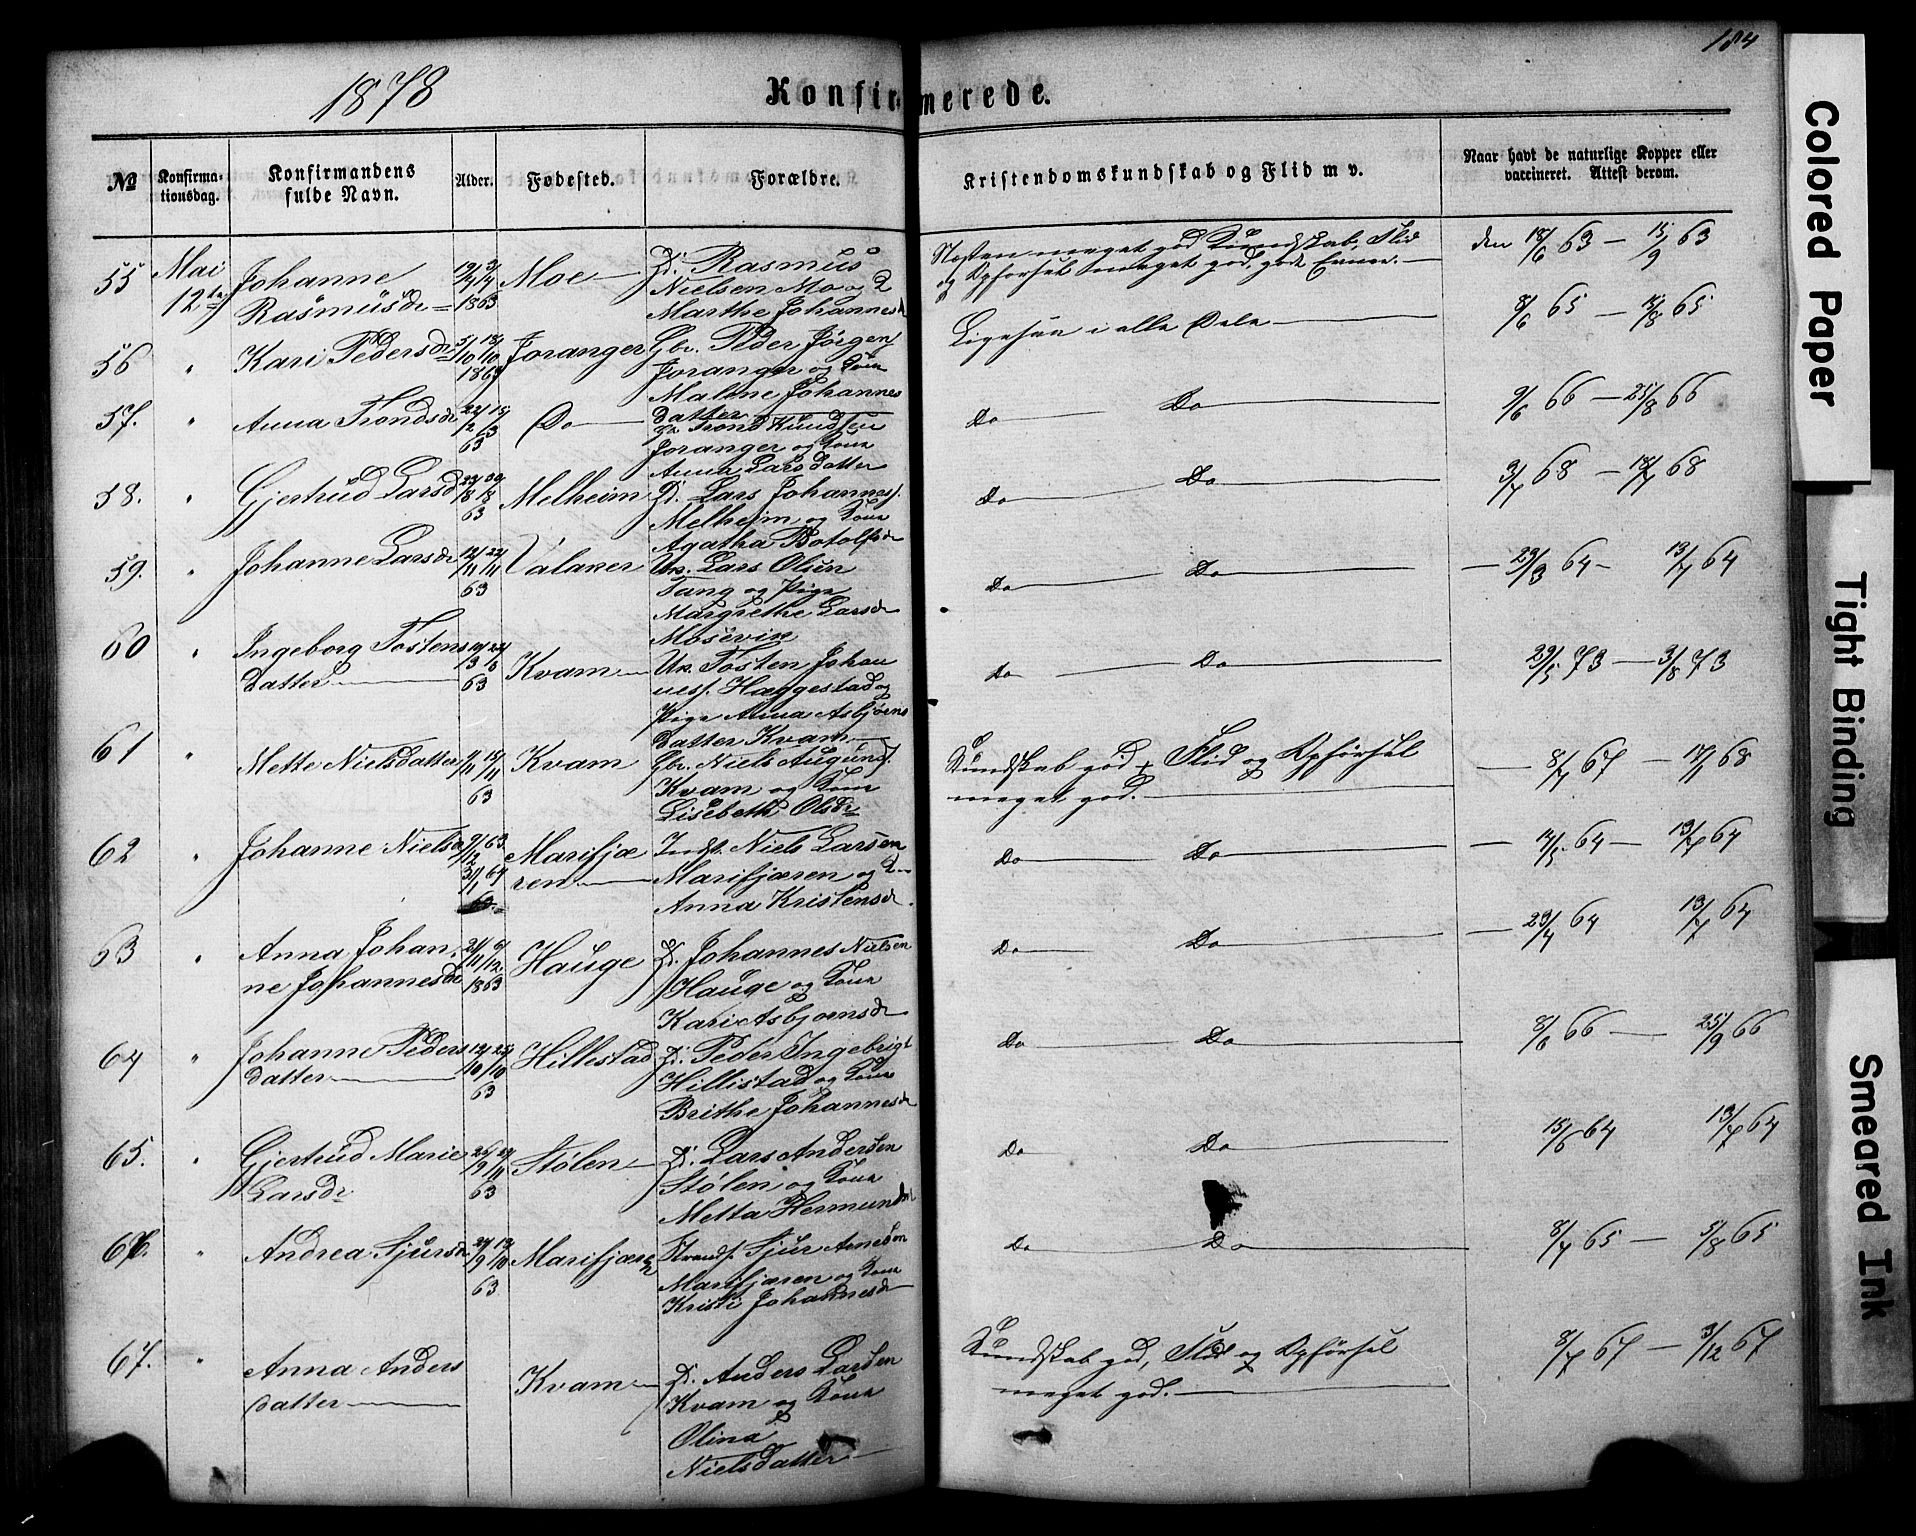 184
1878
Konfirmerede.
No
Konfirma-
tionsdag.
Konfirmandens
fulde Navn.
Alder.
Fødested.
Forældre.
Kristendomskundskab og Flid m v.
Naar havt de naturlige Kopper eller
vaccineret. Attest derom.
55 Mai
12te
Johanne
Rasmusdr
1863
Moe
Rasmus
Nielsen Mo og
Marthe Johannesd
Næsten meget god Kundskab, Flid
og Opførsel meget god, gode Evner.
den 18/6 63 — 15/9 63
56 " Kari Pedersdr
1863
Joranger
Gbr. Peder Jørgens
Joranger og Kone
Malene Johannes
datter
Ligesaa i alle Dele
8/6 65 — 65
57. " Anna Trondsdr
63
Do
Trond Knudsen
Joranger og Kone
Anna Larsdatter
Do Do
9/6 66 — 25/8 66
58. " Gjertrud Larsd
63
Melheim
Lars Johanness.
Melheim og Kone
Agatha Botolfsdr
Do Do
3/7 68 — 18/7 68
59. " Johanne Larsdr
12/11 22/11
63
Valaker
Uk. Lars Olsen
Tang og Pige
Margrethe Larsdr
Mosevin
Do Do
23/3 64 — 13/7 64
60 " Ingeborg Tostens
datter
63
Kvam
Uk. Tosten Johan
ness. Hæggestad og
Pige Anna Asbjørns
datter Kvam
Do Do
29/5 73 — 3/8 73
61 " Mette Nielsdatter
63
Kvam
Gbr. Niels Augunds.
Kvam og Kone
Lisebeth Olsdr
Kundskab god, Flid og Opførsel
meget god.
8/7 67 — 17/1 68
62 " Johanne Nielsd
9/12 63
31/1 64
Marifjæ
ren
Indst. Niels Larsen
Marifjæren og
Anna Kristensd.
Do Do
14/5 64 — 13/7 64
63 " Anna Johan
ne Johannesdr
21/11 6/12
1863
Hauge
Johannes Nielsen
Hauge og Kone
Kari Asbjørnsdr
Do Do
23/4 64 13/7 64
64 " Johanne Peders
datter
12/10 25/10
63
Hillestad
Peder Ingebrigt
Hillistad og Kone
Brithe Johannesdr
Do Do
8/6 66 — 25/9 66
65. " Gjertrud Marie
Larsdr
63
Stølen
Lars Andersen
Stølen og Kone
Metta Hermunds
Do Do
15/6 64 13/7 64
66. " Andrea Sjursdr
63
Marifjæren
Strands. Sjur Arnesen
Marifjæren og Kone
Kristi Johannesdr
Do Do
8/7 65 — 5/8 65
67. " Anna Anders
datter
Kvam
Anders Larsen
Kvam og Kone
Olina
Nielsdatter
Kundskab god, Flid og Opførsel
meget god.
8/7 67 — 3/12 67
Colored Paper
Tight Binding
Smeared Ink